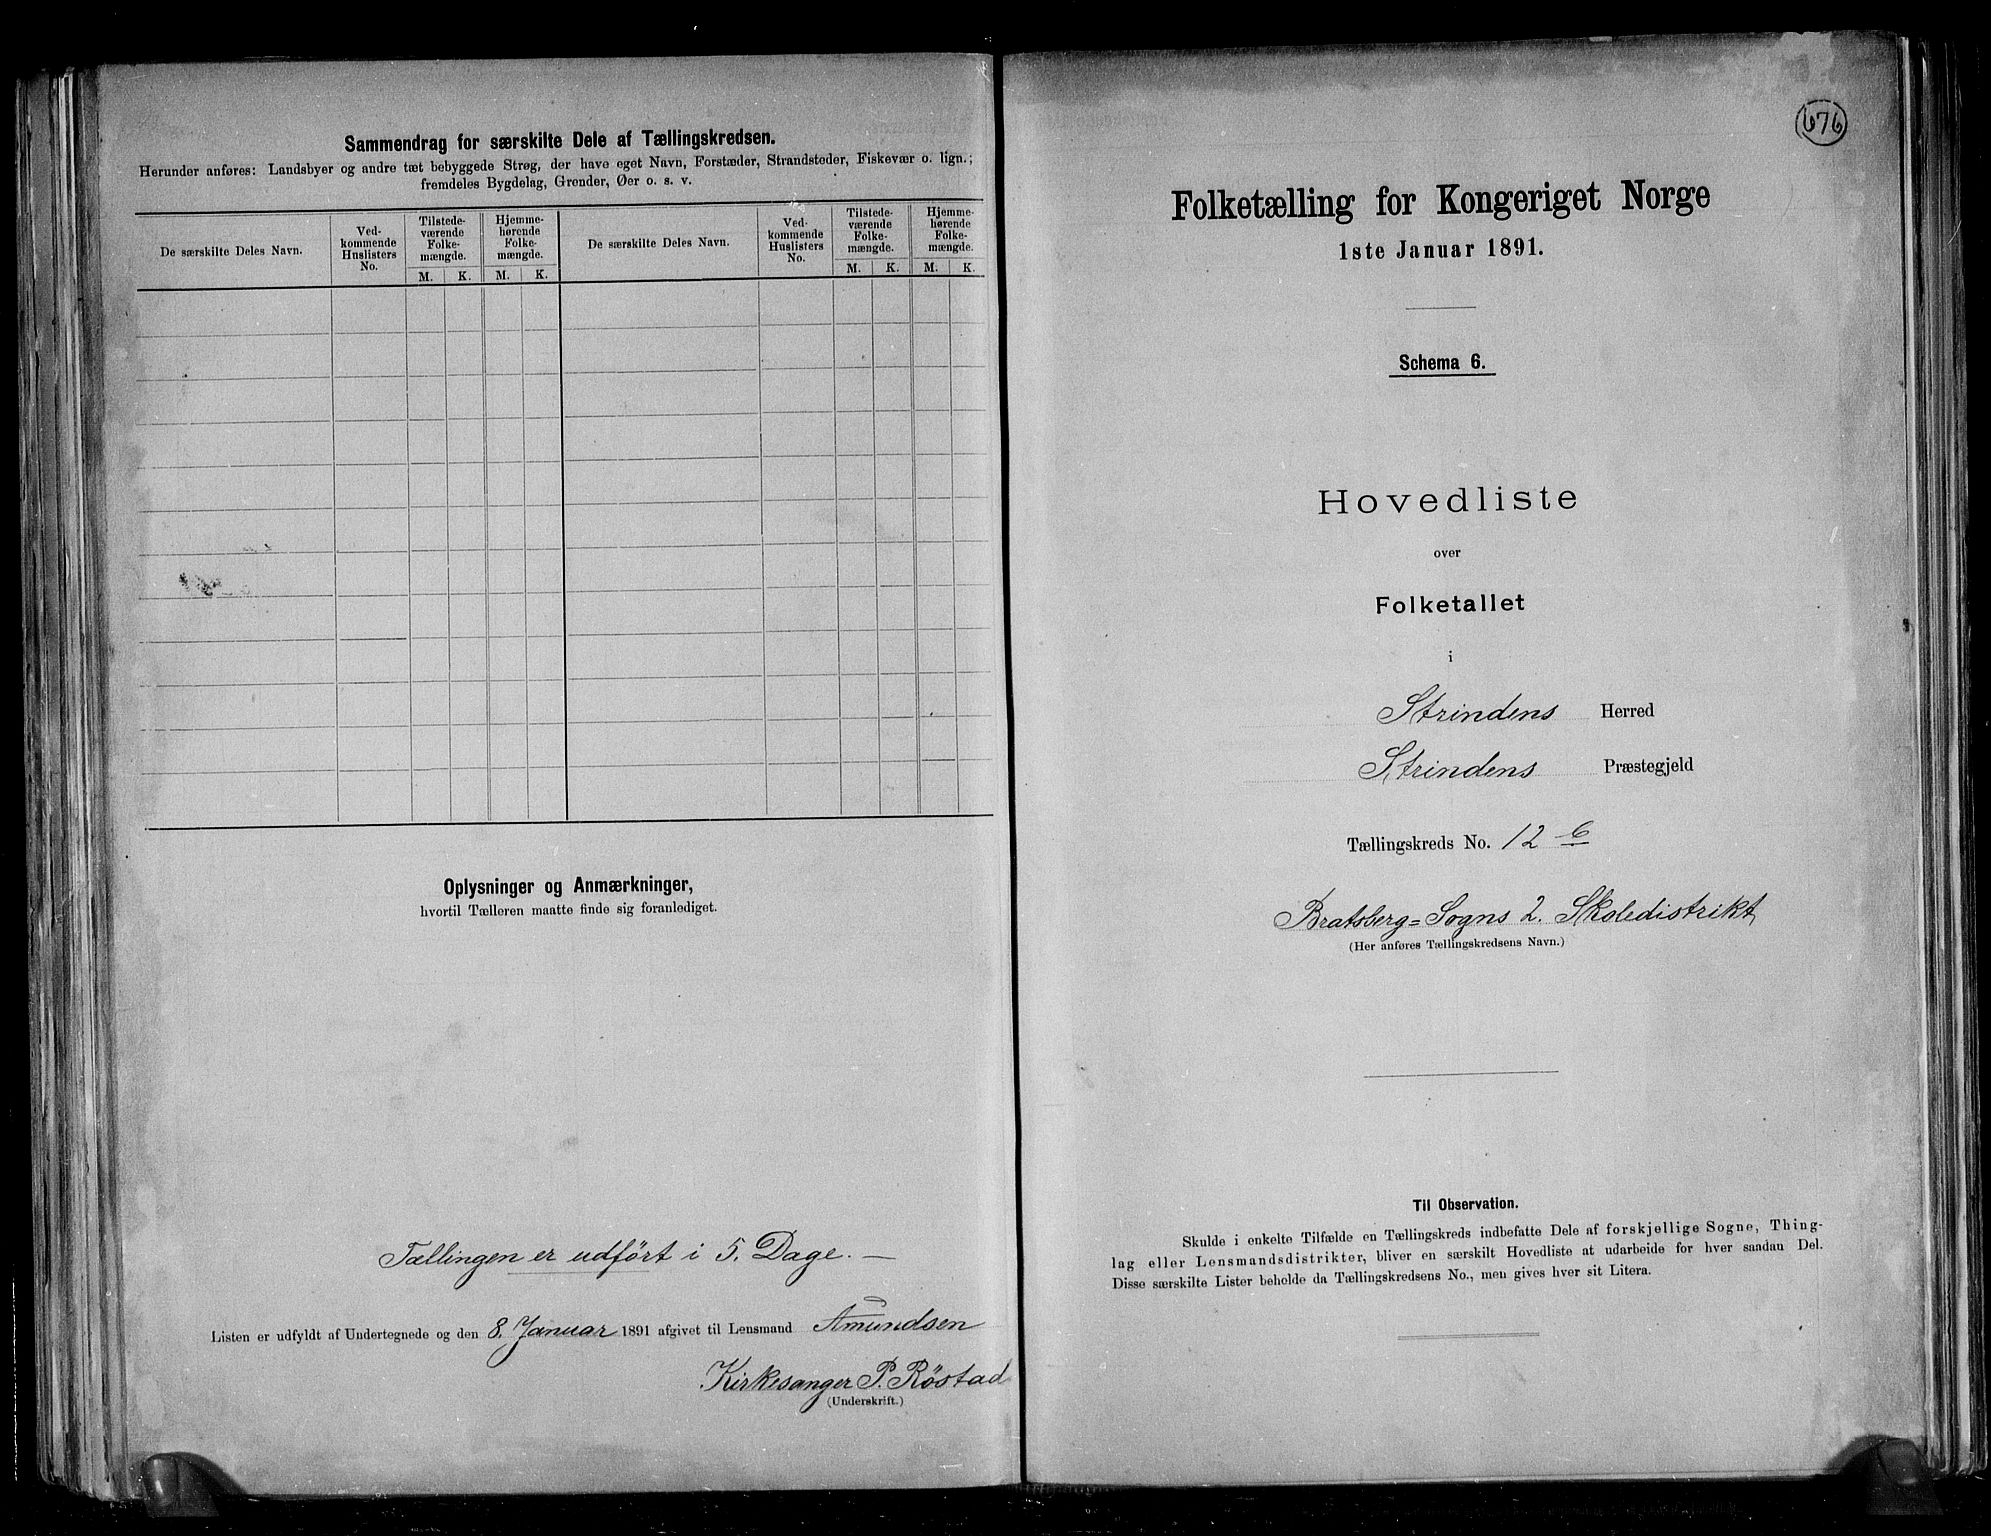 Sammendrag for særskilte Dele af Tællingskredsen.
Herunder anføres: Landsbyer og andre tæt bebyggede Strøg, der have eget Navn, Forstæder, Strandsteder, Fiskevær o. lign.;
fremdeles Bygdelag, Grender, Øer o. s. v.
De særskilte Deles Navn.
Ved-
kommende
Huslisters
No.
Tilstede-
værende
Folke-
mængde.
M. K.
Hjemme-
hørende
Folke-
mængde.
M. K.
De særskilte Deles Navn.
Ved-
kommende
Huslisters
No.
Tilstede-
værende
Folke-
mængde.
M. K.
Hjemme-
hørende
Folke-
mængde.
M. K.
Oplysninger og Anmærkninger,
hvortil Tælleren maatte finde sig foranlediget.
Tællingen er udført i 5. Dage. —
Listen er udfyldt af Undertegnede og den 8. Januar 1891 afgivet til Lensmand Amundsen
Kirkesanger P. Röstad
(Underskrift.)
676
Folketælling for Kongeriget Norge
1ste Januar 1891.
Schema 6.
Hovedliste
over
Folketallet
i
Strindens Herred
Strindens Præstegjeld
Tællingskreds No. 12
Bratsberg=Sogns 2. Skoledistrikt
(Her anføres Tællingskredsens Navn.)
Til Observation.
Skulde i enkelte Tilfælde en Tællingskreds indbefatte Dele af forskjellige Sogne, Thing-
lag eller Lensmandsdistrikter, bliver en særskilt Hovedliste at udarbeide for hver saadan Del.
Disse særskilte Lister beholde da Tællingskredsens No., men gives hver sit Litera.